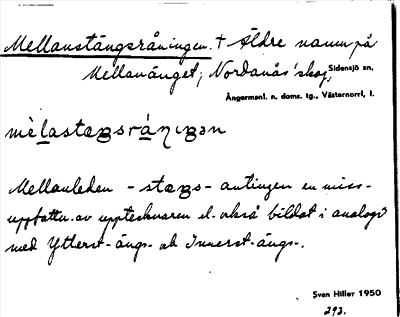 Mellanstängsråningen. † Äldre namn på
Mellanänget; Nordanås' skog,
Sidensjö sn,
Ångermanl. n. doms. tg., Västernorrl. l.
Mellanleden - - antingen en miss-
uppfattn. av upptecknaren el. också bildat i analogi
med Ytterst-ängs- ok Innerst-ängs-.
Sven Hiller 1950
293.